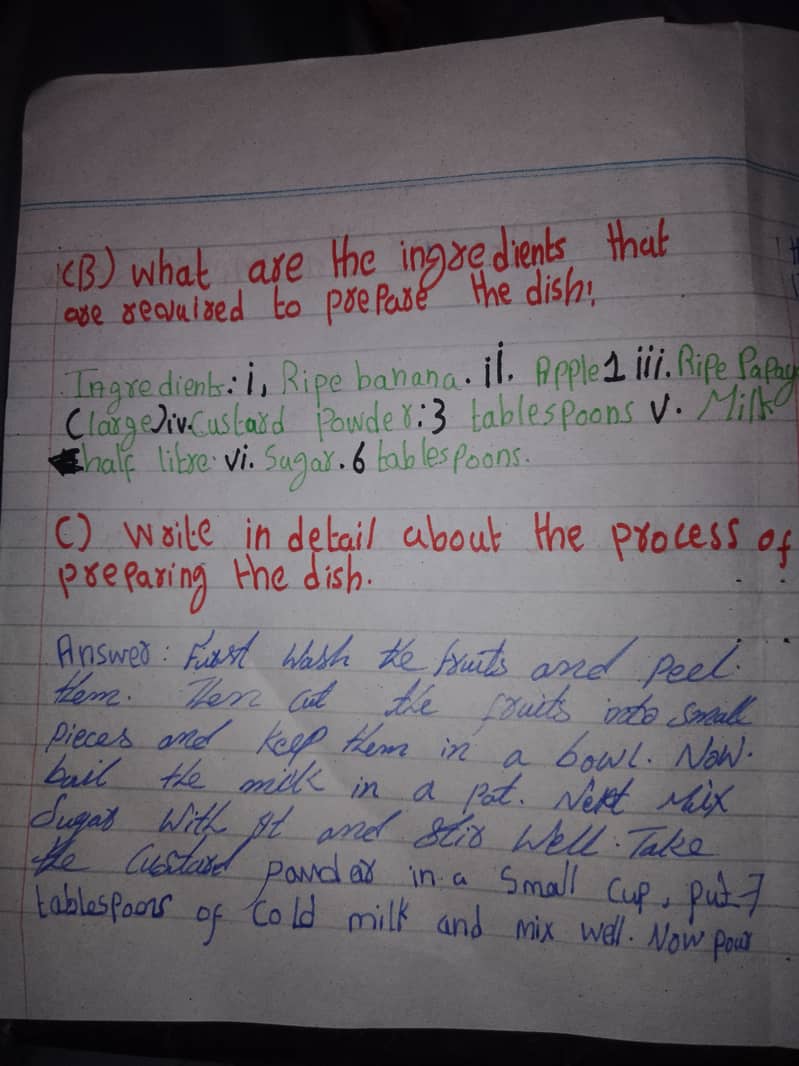 (B) what are the ingredients that
are required to prepare the dish!
Ingredients: i, Ripe banana. ii. Apple 1 iii. Ripe Papay
(large) iv. Custard Powder: 3 tablespoons v. Milk
half litre. vi. Sugar. 6 tablespoons.
C) Write in detail about the process of
preparing the dish.
Answer: First Wash the fruits and peel
them. Then cut the fruits into small
pieces and keep them in a bowl. Now.
bail the milk in a pot. Next Mix
Sugar With It and Stir Well. Take
the Custard powdar in a Small Cup, put 7
tablespoons of Cold milk and mix well. Now pour